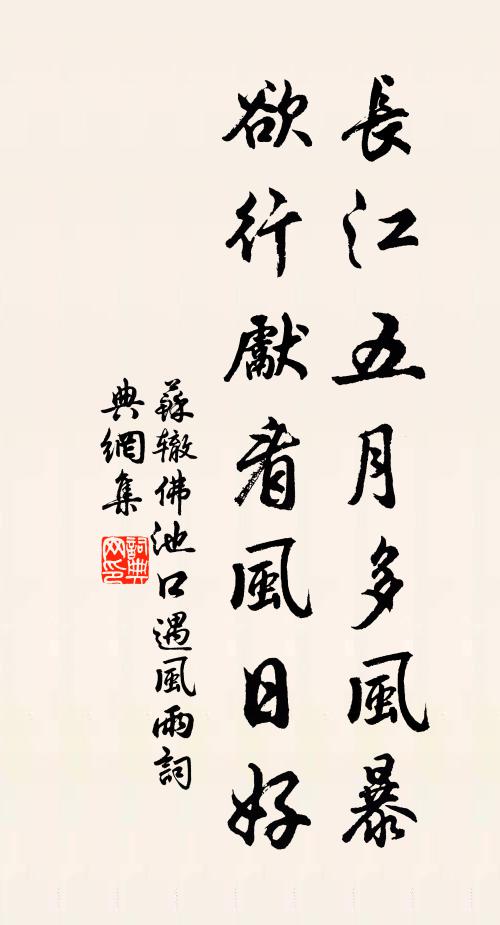 長江五月多風暴
欲行獻看風日好
蘇轍佛池口遇風雨詞
典網集
詞典
网印